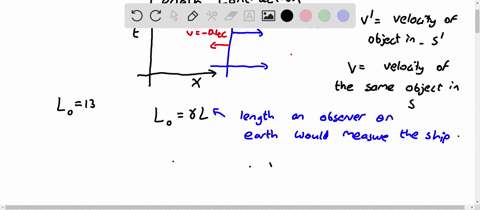 t
V=-0.6c
x
V' = velocity of
object in - S'
V = velocity of
the same object in
S
L₀ = 13
L₀ = γL
length an observer on
earth would measure the ship.